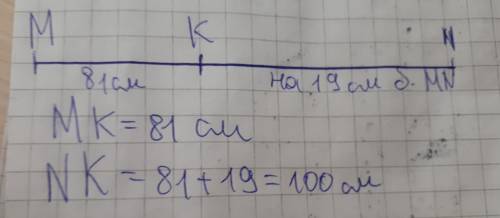 M K N
81 см на 19 см б. MN
MK = 81 см
NK = 81 + 19 = 100 см